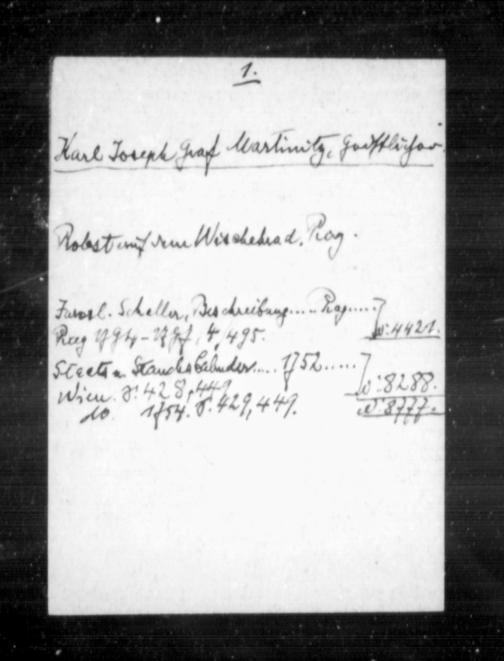 1.
Karl Joseph Graf Martinitz, Geistlicher.
Probst auf dem Wischehrad, Prag.
Jarosl. Schaller, Beschreibung .... Prag ....
Prag 1794-1797, 4, 495. N: 4421.
Staats u. Standes Calender .... 1752 .....
Wien. S: 428, 449. N: 8288.
do. 1754. S: 429, 449. N: 8777.